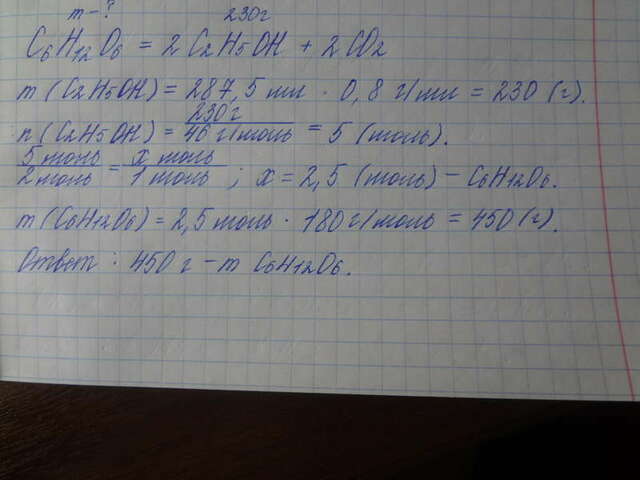 m - ? 230г
C6H12O6 = 2 C2H5OH + 2 CO2
m (C2H5OH) = 287,5 мл · 0,8 г/мл = 230 (г).
n (C2H5OH) = 230г / 46 г/моль = 5 (моль).
5 моль / 2 моль = x моль / 1 моль ; x = 2,5 (моль) - C6H12O6.
m (C6H12O6) = 2,5 моль · 180 г/моль = 450 (г).
Ответ : 450 г - m C6H12O6.